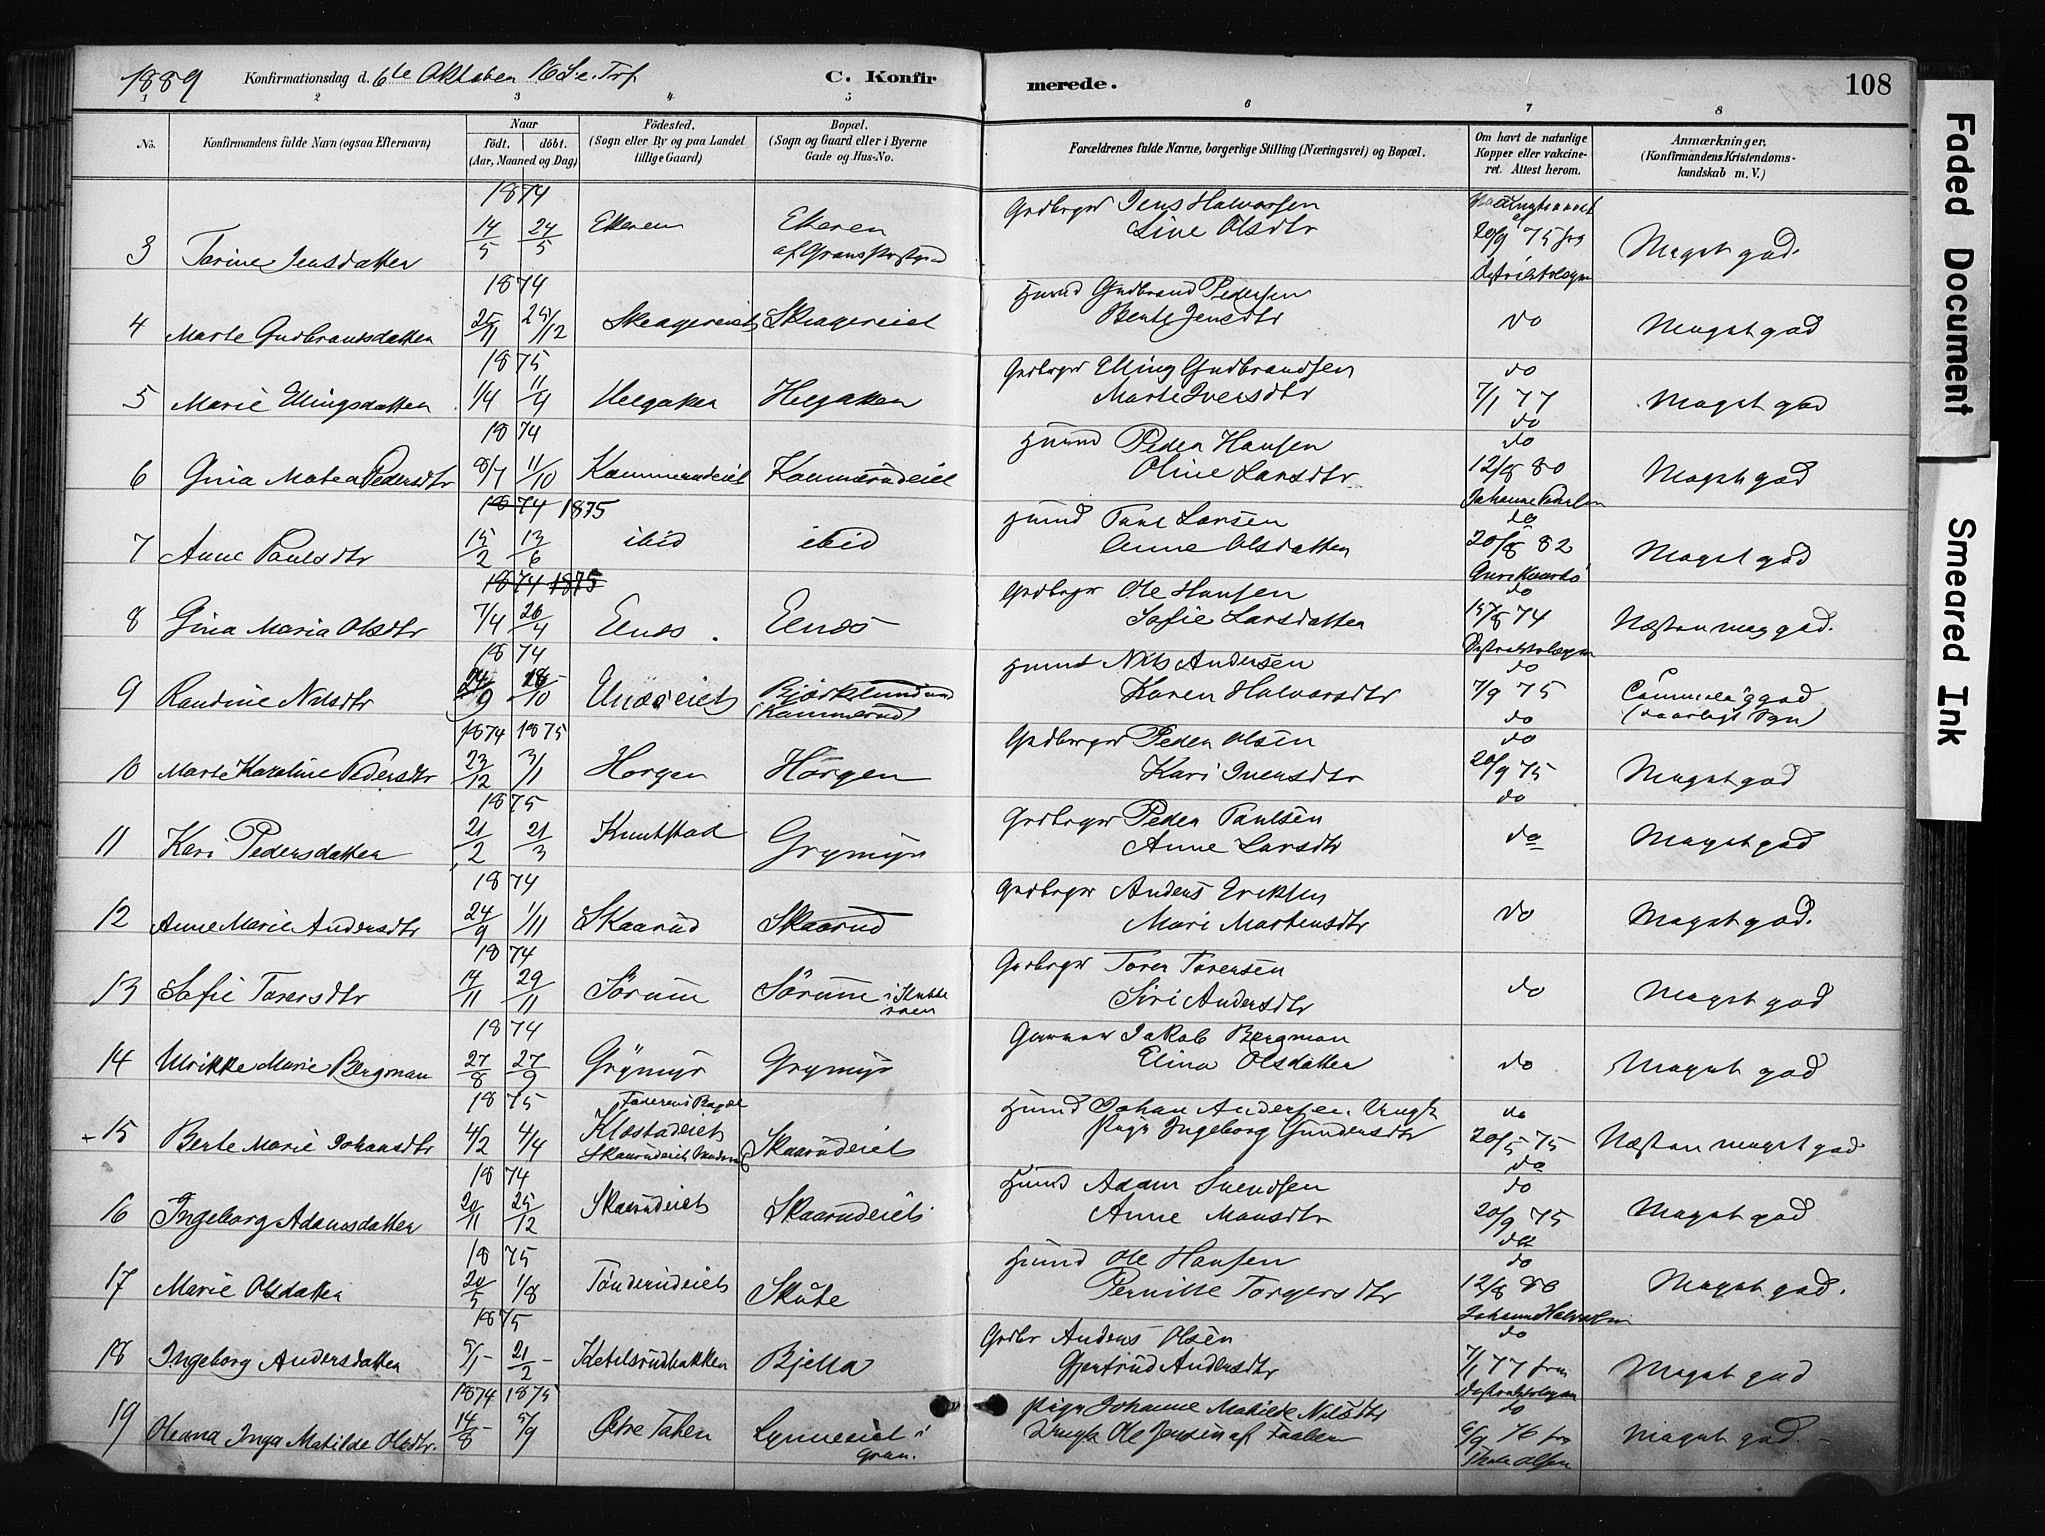 1889 Konfirmationsdag d. 6te Oktober 16 S. e. Trf.
C. Konfirmerede.
108
1 2 3 4 5 6 7 8
No.
Konfirmandens fulde Navn (ogsaa Efternavn)
Naar
födt. döbt.
(Aar, Maaned og Dag)
Födested.
(Sogn eller By og paa Landet
tillige Gaard)
Bopæl.
(Sogn og Gaard eller i Byerne
Gade og Hus-No.
Forældrenes fulde Navne, borgerlige Stilling (Næringsvei) og Bopæl.
Om havt de naturlige
Kopper eller vakcine-
ret. Attest herom.
Anmærkninger.
(Konfirmandens Kristendoms-
kundskab m. V.)
1874
3 Torine Jensdatter 14/5 24/5 Ekeren Ekeren
Grdbrger Jens Halvorsen
Line Olsdtr
20/9 75 fra
Distriktslægen
Meget god.
1874
4 Marte Gudbransdatter 25/11 25/12 Skiagereiet Skiagereiet
Husmd Gudbrand Pedersen
Berte Jensdtr
do
Meget god
1875
5 Marie Ellingsdatter 1/4 11/4 Helgaker Helgaker
Grdbrger Elling Gudbrandsen
Marte Iversdtr
do
7/1 77
do
Meget god
1874
6 Gina Matea Pedersdtr 8/7 11/10 Kammerudeiet Kammerudeiet
Husmd Peder Hansen
Oline Larsdtr
do
12/8 80
Meget god
1874 1875
7 Anne Paulsdtr 15/2 13/6 ibid ibid
Husmd Paul Larsen
Anne Olsdatter
do
20/8 82
Meget god
1874 1875
8 Gina Maria Olsdtr 7/4 26/4 Elnæs Elnæs
Grdbrger Ole Hansen
Sofie Larsdatter
do
15/8 74
Distriktslægen
Næsten meg god.
1874
9 Randine Nilsdtr 24/9 18/10 Elnæseiet Bjørklund
(Kammerud)
Husmd Nils Andersen
Karen Halvorsdtr
do
7/9 75
do
god
(daarligt Syn)
1874 1875
10 Marte Karoline Pedersdtr 23/12 3/1 Horgen Horgen
Grdbrger Peder Olsen
Kari Iversdtr
do
20/9 75
do
Meget god
1875
11 Kari Pedersdatter 21/2 21/3 Knutstad Grymyr
Grdbrger Peder Paulsen
Anne Larsdtr
do
Meget god
1874
12 Anne Marie Andersdtr 24/9 1/11 Skaarud Skaarud
Grdbrger Anders Eriksen
Mari Martensdtr
do
Meget god.
1874
13 Sofie Torersdtr 14/11 29/11 Sörum Sörum i
Grdbrger Torer Torersen
Siri Andersdtr
do
Meget god
1874
14 Ulrikke Marie Bergman 27/8 27/9 Grymyr Grymyr
Jakob Bergman
Elina Olsdatter
do
Meget god
1875
15 Berte Marie Johansdtr 4/2 4/4 Klæstadeiet
Skaarudeiet
Skaarudeiet
Husmd Johan Andersen. Ungk
Pige Ingeborg Gundersdtr
do
20/5 75
do
Næsten meget god
1874
16 Ingeborg Adamsdatter 20/11 25/12 Skaarudeiet Skaarudeiet
Husmd Adam Svendsen
Anne Monsdtr
do
20/9 75
do
Meget god
1875
17 Marie Olsdatter 20/5 1/8 Tönderudeiet Skute
Husmd Ole Hansen
Pernille Torgersdtr
do
12/8 80
Meget god.
1875
18 Ingeborg Andersdatter 5/1 21/2 Ketilsrudbakken Bjella
Grdbr Anders Olsen
Gjertrud Andersdtr
do
7/1 77 fra
Distriktslægen
Meget god
1874 1875
19 Oleana Inga Matilde Olsdtr. 14/8 5/9 Øvre Talen Lynneeiet i
Gran.
Pige Johanne Matilde Nilsdtr
Ungk Ole Jensen af
do
6/9 76 fra
Meget god.
Faded Document
Smeared Ink